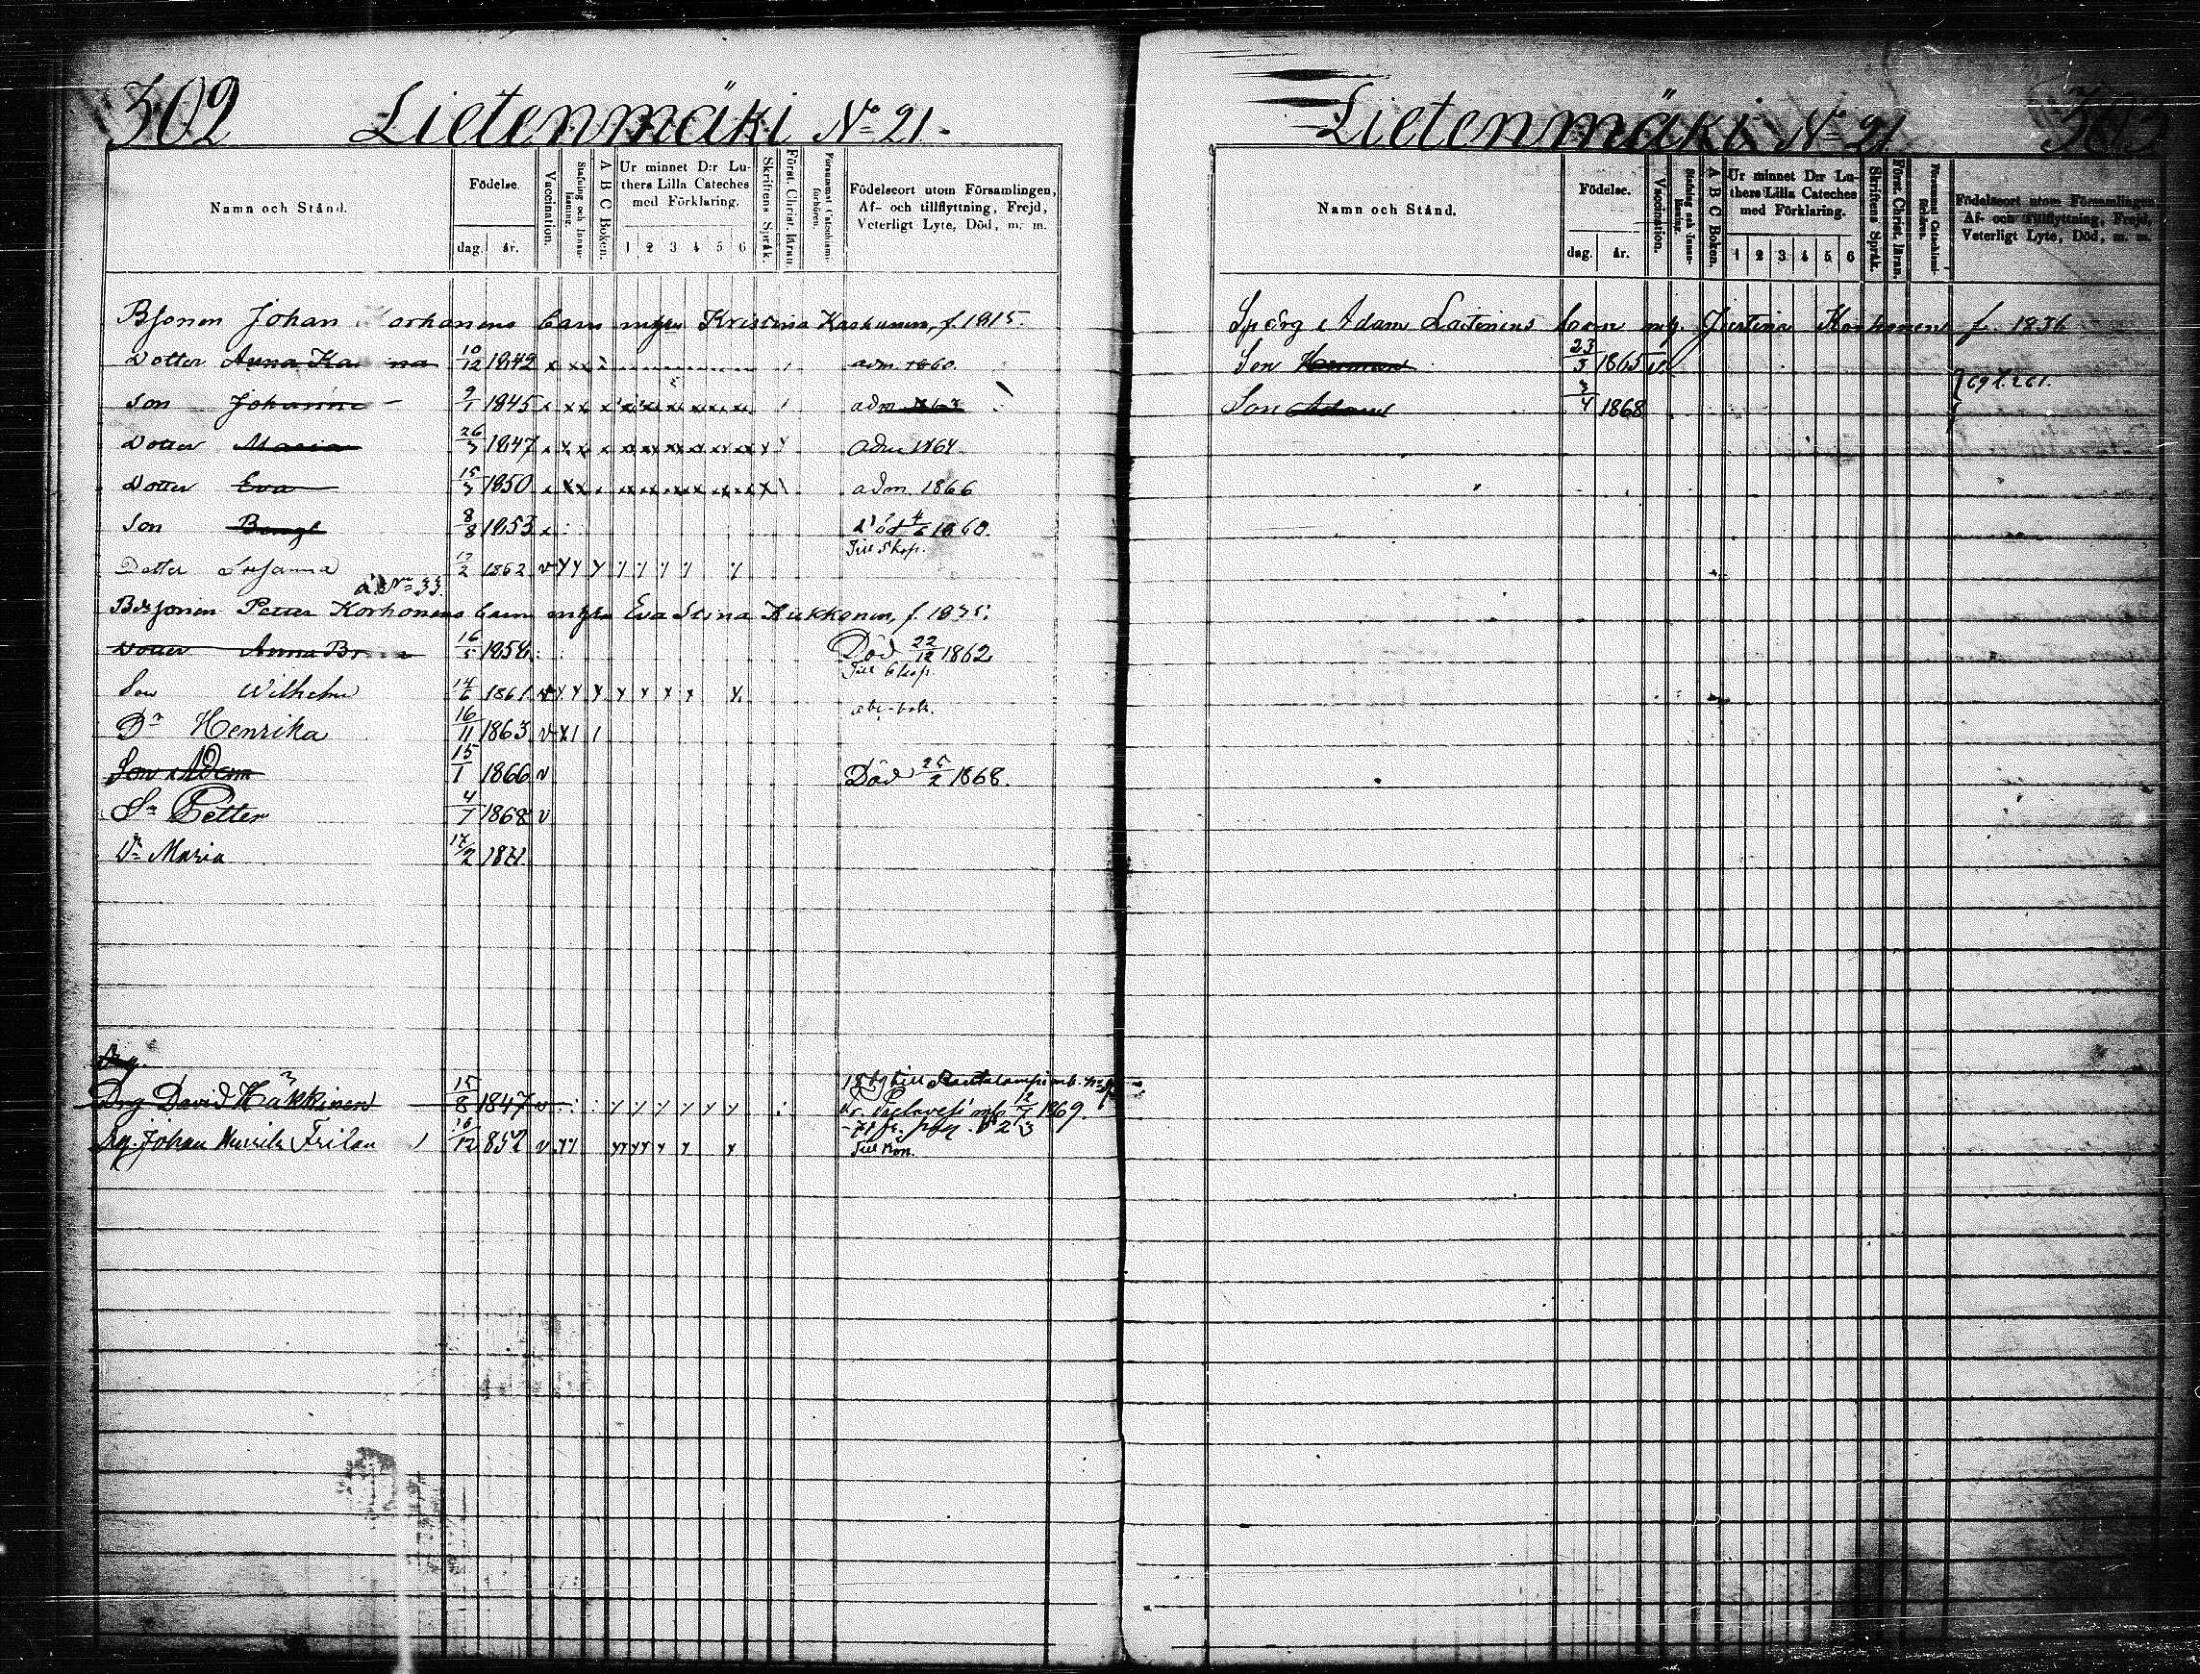 302 Lietenmäki No 21.
Namn och Stånd.
Födelse.
dag. år.
Vaccination.
Stafning och Innanläsning.
A B C Boken.
Ur minnet D:r Luthers Lilla Cateches med Förklaring.
1 2 3 4 5 6
Skriftens Språk.
Först. Christ. läran.
Försummat Catechismiförhören.
Födelseort utom Församlingen,
Af- och tillflyttning, Frejd,
Veterligt Lyte, Död, m. m.
Bsonen Johan orhonens barn Kristina f. 1815.
Dotter Anna Ka na 10/12 1842 adm. 1860.
Son Johannes 9/1 1845 adm
Dotter Maria 26/3 1847 adm 1864.
Dotter Eva 15/3 1850 adm. 1866
Son Bengt 8/8 1853 död 4/6 1860.
Till Skop.
Dotter Susanna 17/2 1862
No 33.
Petter Korhonens barn Eva Stina Kukkonen, f. 1835.
Dotter Anna Br 16/5 1858 Död 22/12 1862
Till Skop.
Son Wilhelm 14/6 1861
abc-bok.
Dr Henrika 16/11 1863
Son Adam 15/1 1866 Död 25/2 1868.
Sn Petter 4/7 1868
Dr Maria 17/2 1871
Drg.
till Rautalampi
Drg David Häkkinen 15/8 1847 12/7 1869.
Dg. Johan Henrik Frilan 16/12 852
Lietenmäki No 21 303
Namn och Stånd.
Födelse.
dag. år.
Vaccination.
Stafning och Innanläsning.
A B C Boken.
Ur minnet D:r Luthers Lilla Cateches med Förklaring.
1 2 3 4 5 6
Skriftens Språk.
Först. Christ. läran.
Försummat Catechismiförhören.
Födelseort utom Församlingen,
Af- och tillflyttning, Frejd,
Veterligt Lyte, Död, m. m.
Adam Laitinens barn m. Justina Korhonen f. 1836
Son Herman 23/3 1865
Son Adam 3/4 1868